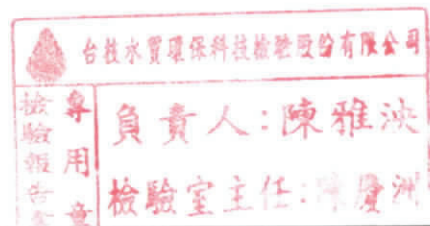 台技水質環保科技檢驗股份有限公司
檢驗報告
專用章
負責人:陳雅泱
檢驗室主任:陳慶洲